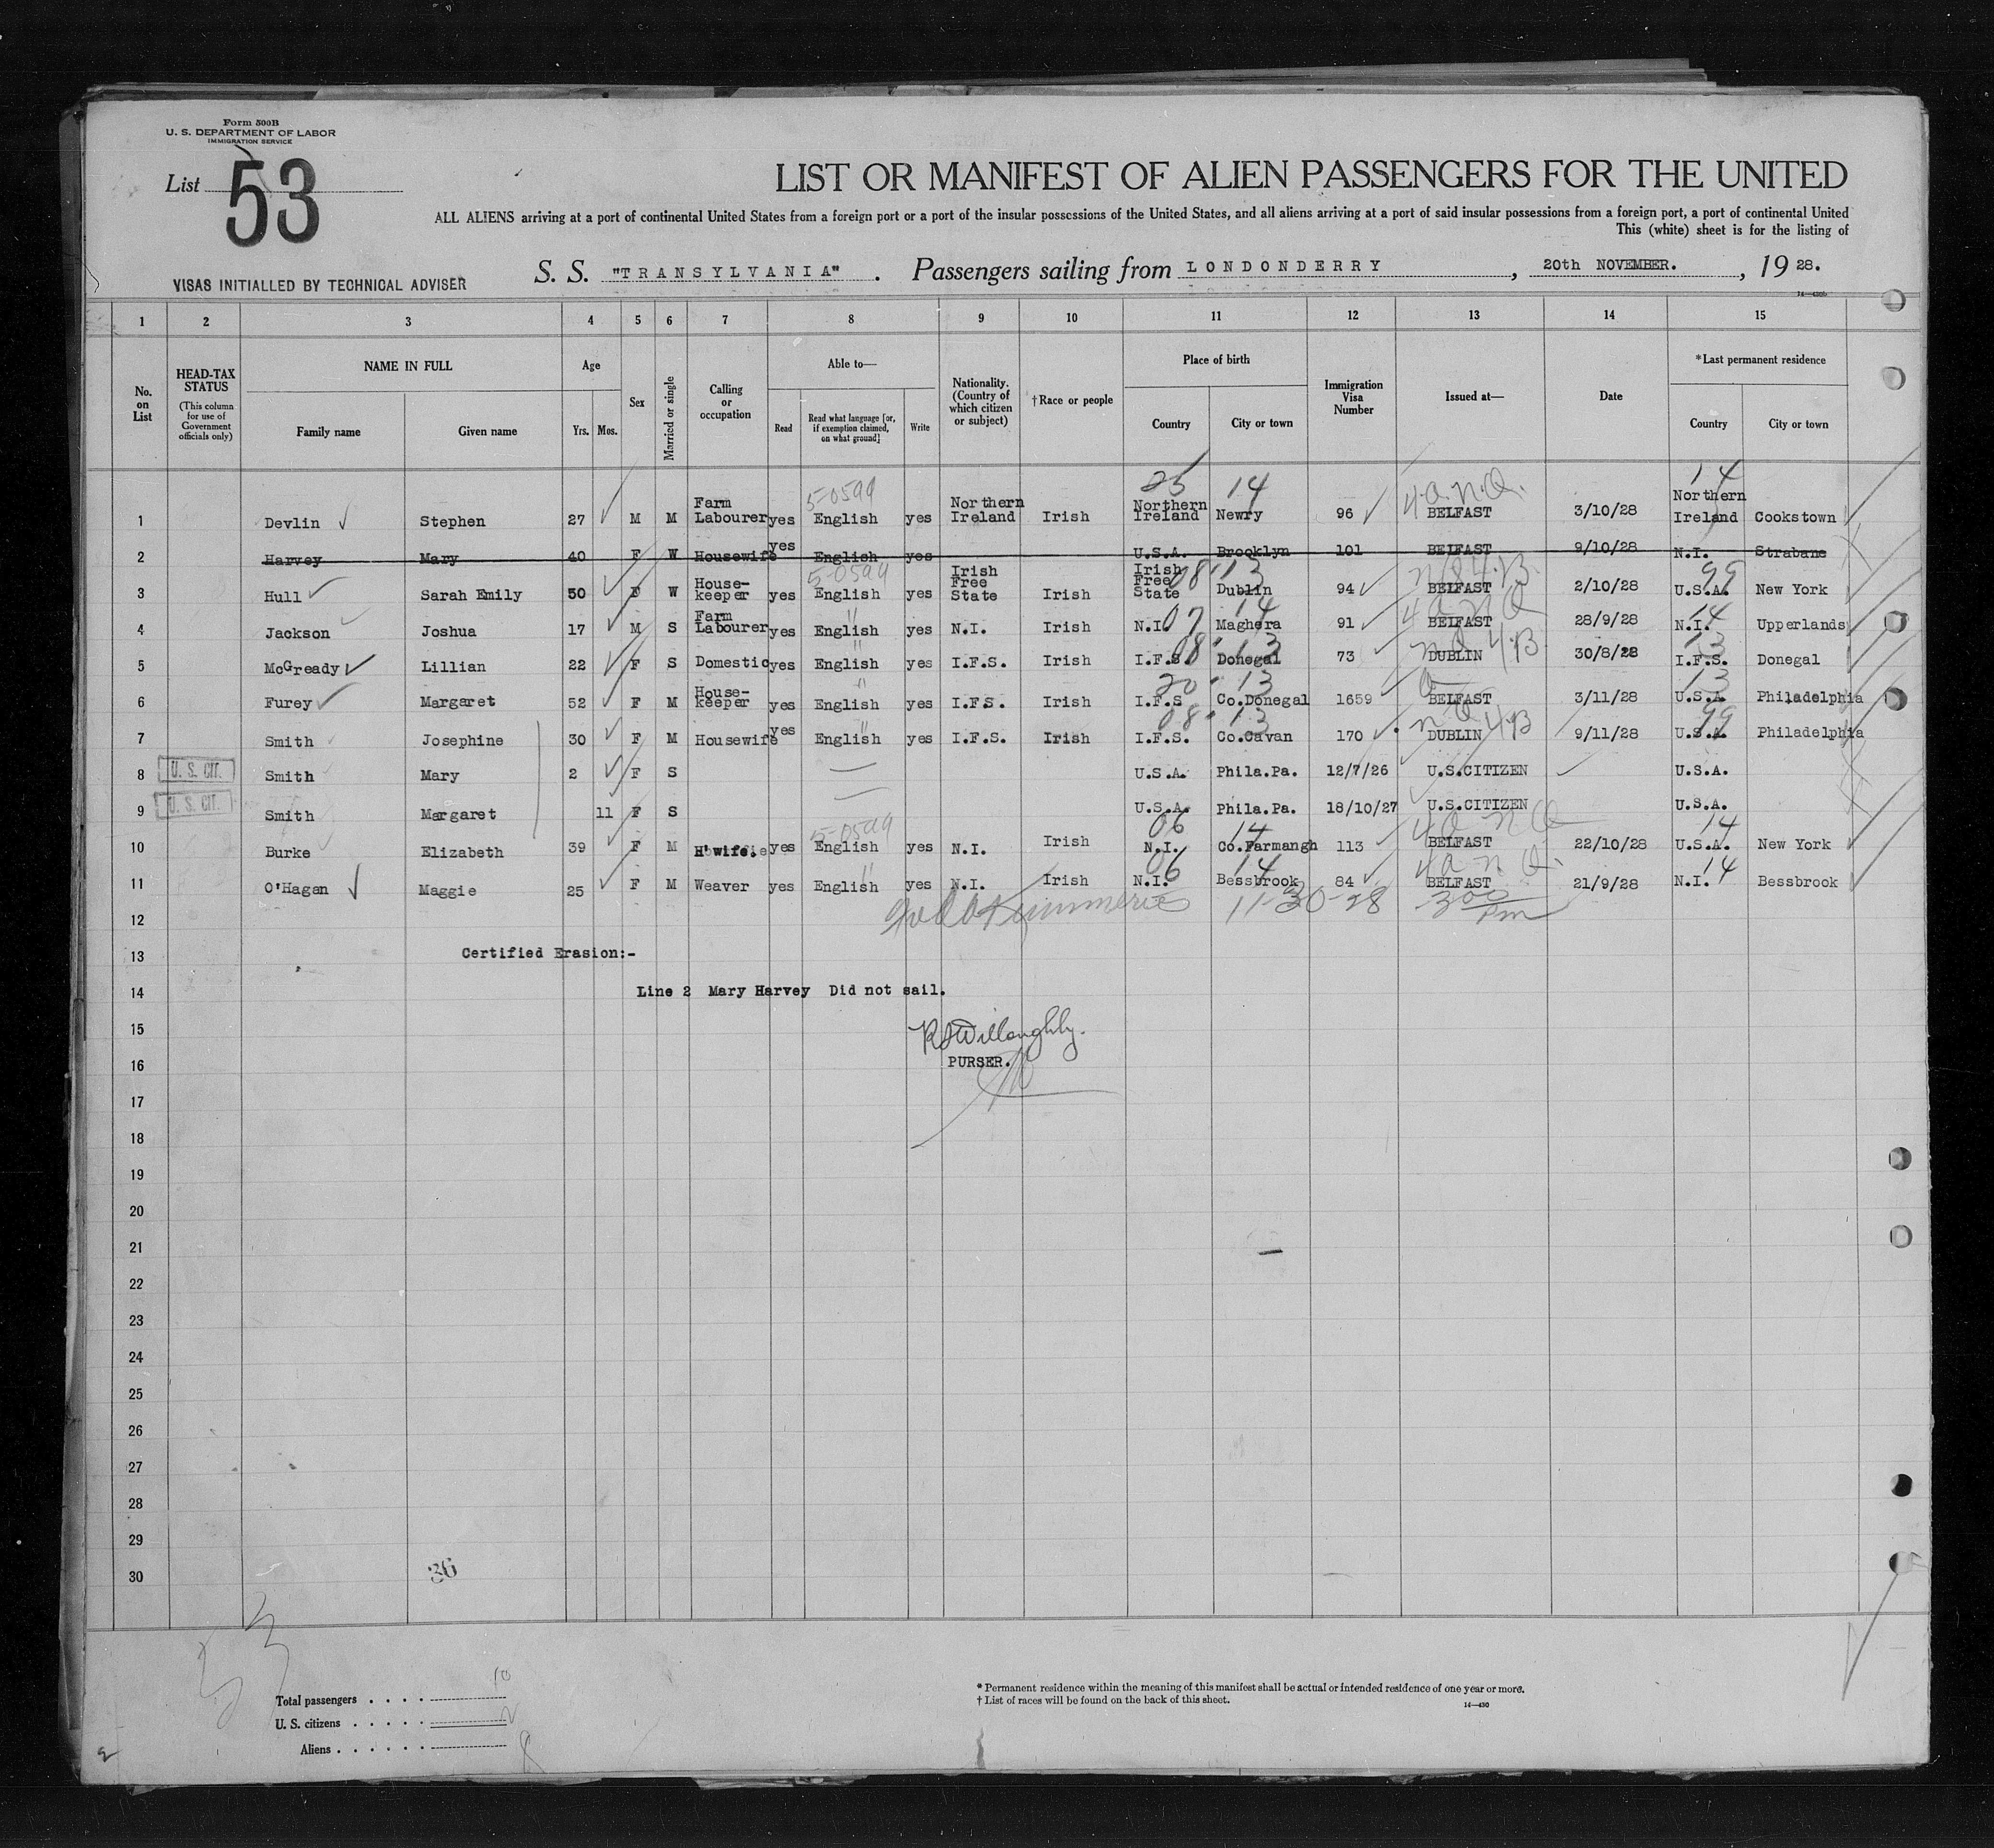 Form 500B
U. S. DEPARTMENT OF LABOR
IMMIGRATION SERVICE
List 53
LIST OR MANIFEST OF ALIEN PASSENGERS FOR THE UNITED
ALL ALIENS arriving at a port of continental United States from a foreign port or a port of the insular possessions of the United States, and all aliens arriving at a port of said insular possessions from a foreign port, a port of continental United
This (white) sheet is for the listing of
VISAS INITIALLED BY TECHNICAL ADVISER
S. S. "TRANSYLVANIA". Passengers sailing from LONDONDERRY, 20th NOVEMBER., 19 28.
14—430b
1 2 3 4 5 6 7 8 9 10 11 12 13 14 15
No. on List
HEAD-TAX STATUS (This column for use of Government officials only)
NAME IN FULL Family name Given name
Age Yrs. Mos.
Sex
Married or single
Calling or occupation
Able to— Read Read what language [or, if exemption claimed, on what ground] Write
Nationality. (Country of which citizen or subject)
†Race or people
Place of birth Country City or town
Immigration Visa Number
Issued at—
Date
*Last permanent residence Country City or town
25 14 4.a.n.Q. 14
5-0599
1 Devlin Stephen 27 M M Farm Labourer yes English yes Northern Ireland Irish Northern Ireland Newry 96 BELFAST 3/10/28 Northern Ireland Cookstown
2 Harvey Mary 40 F W Housewife yes English yes U.S.A. Brooklyn 101 BELFAST 9/10/28 N.I. Strabane
5-0599 08 13 99
3 Hull Sarah Emily 50 F W House-keeper yes English yes Irish Free State Irish Irish Free State Dublin 94 BELFAST 2/10/28 U.S.A. New York
07 14 14
4 Jackson Joshua 17 M S Farm Labourer yes English yes N.I. Irish N.I. Maghera 91 BELFAST 28/9/28 N.I. Upperlands
08 13 13
5 McGready Lillian 22 F S Domestic yes English yes I.F.S. Irish I.F.S. Donegal 73 DUBLIN 30/8/28 I.F.S. Donegal
20 13 13
6 Furey Margaret 52 F M House-keeper yes English yes I.F.S. Irish I.F.S Co.Donegal 1659 BELFAST 3/11/28 U.S.A Philadelphia
08 13 99
7 Smith Josephine 30 F M Housewife yes English yes I.F.S. Irish I.F.S. Co.Cavan 170 DUBLIN 9/11/28 U.S.A. Philadelphia
8 U. S. CIT. Smith Mary 2 F S U.S.A. Phila.Pa. 12/7/26 U.S.CITIZEN U.S.A.
9 U. S. CIT. Smith Margaret 11 F S U.S.A. Phila.Pa. 18/10/27 U.S.CITIZEN U.S.A.
5-0599 06 14 14
10 Burke Elizabeth 39 F M H'wife. yes English yes N.I. Irish N.I. Co.Farmangh 113 BELFAST 22/10/28 U.S.A. New York
06 14 14
11 O'Hagan Maggie 25 F M Weaver yes English yes N.I. Irish N.I. Bessbrook 84 BELFAST 21/9/28 N.I. Bessbrook
12 11-30-28 300 Pm
13 Certified Erasion:-
14 Line 2 Mary Harvey Did not sail.
15 Willoughby.
16 PURSER.
17
18
19
20
21
22
23
24
25
26
27
28
29
30
36
53
Total passengers . . . . 10
U. S. citizens . . . . . 2
Aliens . . . . . . 8
* Permanent residence within the meaning of this manifest shall be actual or intended residence of one year or more.
† List of races will be found on the back of this sheet.
14—430
2